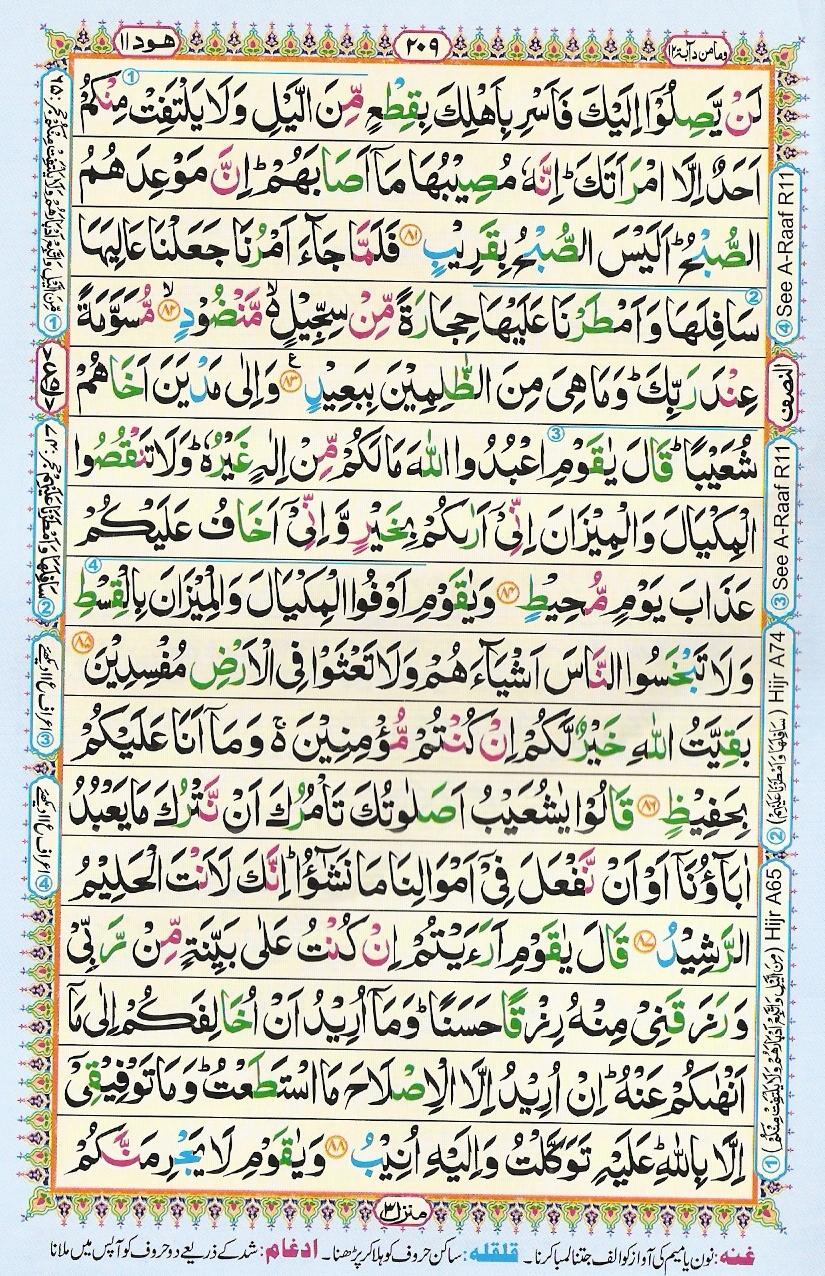 وما من دآبة ١٢
٢٠٩
هود ١١
لَنْ يَّصِلُوْۤا اِلَيْكَ فَاَسْرِ بِاَهْلِكَ بِقِطْعٍ مِّنَ الَّيْلِ وَلَا يَلْتَفِتْ مِنْكُمْ
اَحَدٌ اِلَّا امْرَاَتَكَ ؕ اِنَّهٗ مُصِيْبُهَا مَاۤ اَصَابَهُمْ ؕ اِنَّ مَوْعِدَهُمُ
الصُّبْحُ ؕ اَلَيْسَ الصُّبْحُ بِقَرِيْبٍ ﴿۸۱﴾ فَلَمَّا جَآءَ اَمْرُنَا جَعَلْنَا عَالِيَهَا
سَافِلَهَا وَاَمْطَرْنَا عَلَيْهَا حِجَارَةً مِّنْ سِجِّيْلٍ ۙ مَّنْضُوْدٍ ﴿۸۲﴾ ۙ مُّسَوَّمَةً
عِنْدَ رَبِّكَ ؕ وَمَا هِىَ مِنَ الظّٰلِمِيْنَ بِبَعِيْدٍ ﴿۸۳﴾ ع وَاِلٰى مَدْيَنَ اَخَاهُمْ
شُعَيْبًا ؕ قَالَ يٰقَوْمِ اعْبُدُوا اللّٰهَ مَا لَكُمْ مِّنْ اِلٰهٍ غَيْرُهٗ ؕ وَلَا تَنْقُصُوا
الْمِكْيَالَ وَالْمِيْزَانَ اِنِّىْۤ اَرٰىكُمْ بِخَيْرٍ وَّاِنِّىْۤ اَخَافُ عَلَيْكُمْ
عَذَابَ يَوْمٍ مُّحِيْطٍ ﴿۸۴﴾ وَيٰقَوْمِ اَوْفُوا الْمِكْيَالَ وَالْمِيْزَانَ بِالْقِسْطِ
وَلَا تَبْخَسُوا النَّاسَ اَشْيَآءَهُمْ وَلَا تَعْثَوْا فِى الْاَرْضِ مُفْسِدِيْنَ ﴿۸۵﴾
بَقِيَّتُ اللّٰهِ خَيْرٌ لَّكُمْ اِنْ كُنْتُمْ مُّؤْمِنِيْنَ ۚ وَمَاۤ اَنَا عَلَيْكُمْ
بِحَفِيْظٍ ﴿۸۶﴾ قَالُوْا يٰشُعَيْبُ اَصَلٰوتُكَ تَاْمُرُكَ اَنْ نَّتْرُكَ مَا يَعْبُدُ
اٰبَآؤُنَاۤ اَوْ اَنْ نَّفْعَلَ فِىْۤ اَمْوَالِنَا مَا نَشٰٓؤُا ؕ اِنَّكَ لَاَنْتَ الْحَلِيْمُ
الرَّشِيْدُ ﴿۸۷﴾ قَالَ يٰقَوْمِ اَرَءَيْتُمْ اِنْ كُنْتُ عَلٰى بَيِّنَةٍ مِّنْ رَّبِّىْ
وَرَزَقَنِىْ مِنْهُ رِزْقًا حَسَنًا ؕ وَمَاۤ اُرِيْدُ اَنْ اُخَالِفَكُمْ اِلٰى مَاۤ
اَنْهٰىكُمْ عَنْهُ ؕ اِنْ اُرِيْدُ اِلَّا الْاِصْلَاحَ مَا اسْتَطَعْتُ ؕ وَمَا تَوْفِيْقِىْۤ
اِلَّا بِاللّٰهِ ؕ عَلَيْهِ تَوَكَّلْتُ وَاِلَيْهِ اُنِيْبُ ﴿۸۸﴾ وَيٰقَوْمِ لَا يَجْرِمَنَّكُمْ
④ See A-Raaf R11
النصف
③ See A-Raaf R11
② (سَافِلَهَا وَاَمْطَرْنَا عَلَيْهِمْ) Hijr A74
① (مِنَ الَّيْلِ وَاتَّبِعْ اَدْبَارَهُمْ وَلَا يَلْتَفِتْ مِنْكُمْ) Hijr A65
③ اعراف ع ۱۱ دیکھئے
④ اعراف ع ۱۱ دیکھئے
منزل ٣
غنہ: نون یا میم کی آواز کو الف جتنا لمبا کرنا۔ قلقلہ: ساکن حروف کو ہلا کر پڑھنا۔ ادغام: شد کے ذریعے دو حروف کو آپس میں ملانا